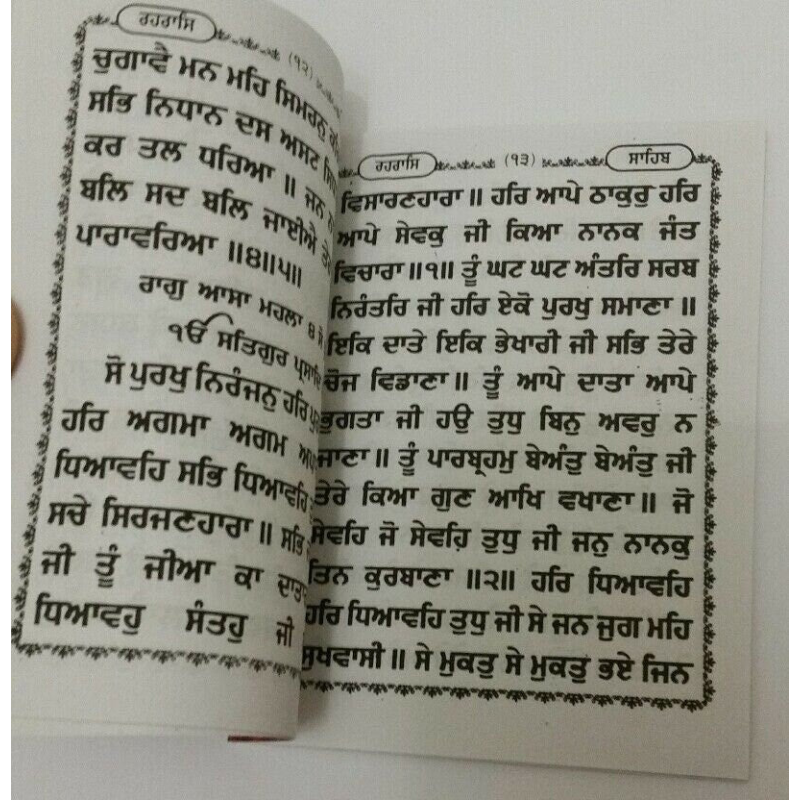 ਰਹਰਾਸਿ
(੧੨)
ਚੁਗਾਵੈ ਮਨ ਮਹਿ ਸਿਮਰਨੁ
ਸਭਿ ਨਿਧਾਨ ਦਸ ਅਸਟ
ਕਰ ਤਲ ਧਰਿਆ ॥ ਜਨ
ਬਲਿ ਸਦ ਬਲਿ ਜਾਈਐ
ਪਾਰਾਵਰਿਆ ॥੪॥੫॥
ਰਾਗੁ ਆਸਾ ਮਹਲਾ ੪
ੴ ਸਤਿਗੁਰ
ਸੋ ਪੁਰਖੁ ਨਿਰੰਜਨੁ ਹਰਿ
ਹਰਿ ਅਗਮਾ ਅਗਮ
ਧਿਆਵਹਿ ਸਭਿ ਧਿਆਵਹਿ
ਸਚੇ ਸਿਰਜਣਹਾਰਾ ॥ ਸਭਿ
ਜੀ ਤੂੰ ਜੀਆ ਕਾ
ਧਿਆਵਹੁ ਸੰਤਹੁ ਜੀ
ਰਹਰਾਸਿ (੧੩) ਸਾਹਿਬ
ਵਿਸਾਰਣਹਾਰਾ ॥ ਹਰਿ ਆਪੇ ਠਾਕੁਰੁ ਹਰਿ
ਆਪੇ ਸੇਵਕੁ ਜੀ ਕਿਆ ਨਾਨਕ ਜੰਤ
ਵਿਚਾਰਾ ॥੧॥ ਤੂੰ ਘਟ ਘਟ ਅੰਤਰਿ ਸਰਬ
ਨਿਰੰਤਰਿ ਜੀ ਹਰਿ ਏਕੋ ਪੁਰਖੁ ਸਮਾਣਾ ॥
ਇਕਿ ਦਾਤੇ ਇਕਿ ਭੇਖਾਰੀ ਜੀ ਸਭਿ ਤੇਰੇ
ਚੋਜ ਵਿਡਾਣਾ ॥ ਤੂੰ ਆਪੇ ਦਾਤਾ ਆਪੇ
ਭੁਗਤਾ ਜੀ ਹਉ ਤੁਧੁ ਬਿਨੁ ਅਵਰੁ ਨ
ਜਾਣਾ ॥ ਤੂੰ ਪਾਰਬ੍ਰਹਮੁ ਬੇਅੰਤੁ ਬੇਅੰਤੁ ਜੀ
ਤੇਰੇ ਕਿਆ ਗੁਣ ਆਖਿ ਵਖਾਣਾ ॥ ਜੋ
ਸੇਵਹਿ ਜੋ ਸੇਵਹਿ ਤੁਧੁ ਜੀ ਜਨੁ ਨਾਨਕੁ
ਤਿਨ ਕੁਰਬਾਣਾ ॥੨॥ ਹਰਿ ਧਿਆਵਹਿ
ਹਰਿ ਧਿਆਵਹਿ ਤੁਧੁ ਜੀ ਸੇ ਜਨ ਜੁਗ ਮਹਿ
ਸੁਖਵਾਸੀ ॥ ਸੇ ਮੁਕਤੁ ਸੇ ਮੁਕਤੁ ਭਏ ਜਿਨ